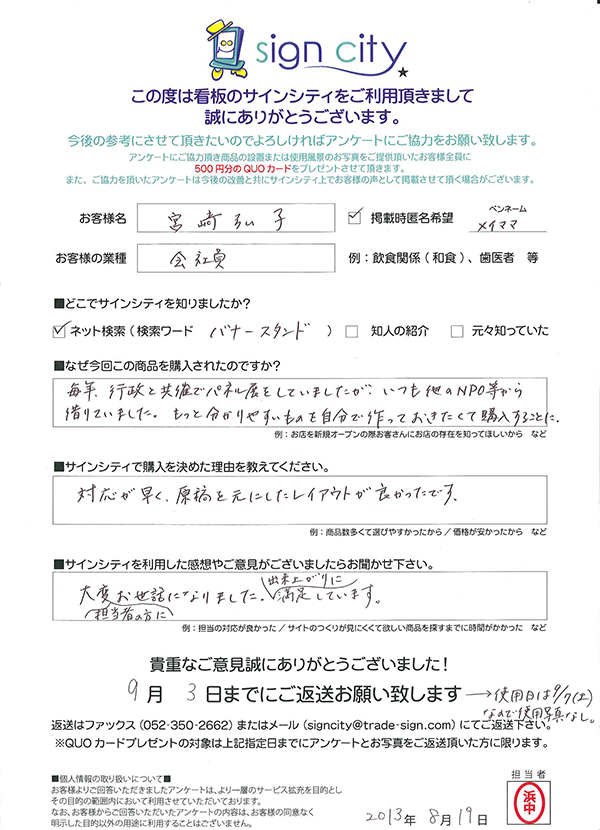 sign city
この度は看板のサインシティをご利用頂きまして
誠にありがとうございます。
今後の参考にさせて頂きたいのでよろしければアンケートにご協力をお願い致します。
アンケートにご協力頂き商品の設置または使用風景のお写真をご提供頂いたお客様全員に
500円分のQUOカードをプレゼントさせて頂きます。
また、ご協力を頂いたアンケートは今後の改善と共にサインシティ上でお客様の声として掲載させて頂く場合がございます。
お客様名 宮崎弘子 ☑ 掲載時匿名希望 ペンネーム メイママ
お客様の業種 会社員 例：飲食関係（和食）、歯医者 等
■どこでサインシティを知りましたか？
☑ ネット検索（検索ワード バナースタンド ） □ 知人の紹介 □ 元々知っていた
■なぜ今回この商品を購入されたのですか？
毎年、行政と共催でパネル展をしていましたが、いつも他のNPO等から
借りていました。もっと分かりやすいものを自分で作っておきたくて購入することに。
例：お店を新規オープンの際お客さんにお店の存在を知ってほしいから など
■サインシティで購入を決めた理由を教えてください。
対応が早く、原稿を元にしたレイアウトが良かったです。
例：商品数多くて選びやすかったから / 価格が安かったから など
■サインシティを利用した感想やご意見がございましたらお聞かせ下さい。
出来上がりに
大変お世話になりました。満足しています。
担当者の方に
例：担当の対応が良かった / サイトのつくりが見にくくて欲しい商品を探すまでに時間がかかった など
貴重なご意見誠にありがとうございました！
9月 3日までにご返送お願い致します →使用日は9/7(土)
なので使用写真なし。
返送はファックス（052-350-2662）またはメール（signcity@trade-sign.com）にてご返送下さい。
※QUOカードプレゼントの対象は上記指定日までにアンケートとお写真をご返送頂いた方に限ります。
■個人情報の取り扱いについて■
お客様よりご回答いただきましたアンケートは、より一層のサービス拡充を目的とし
その目的の範囲内において利用させていただいております。
なお、お客様からご回答いただいたアンケートの内容は、お客様の同意なく
明示した目的以外の用途に利用することはございません。
2013年 8月19日
担当者
浜中